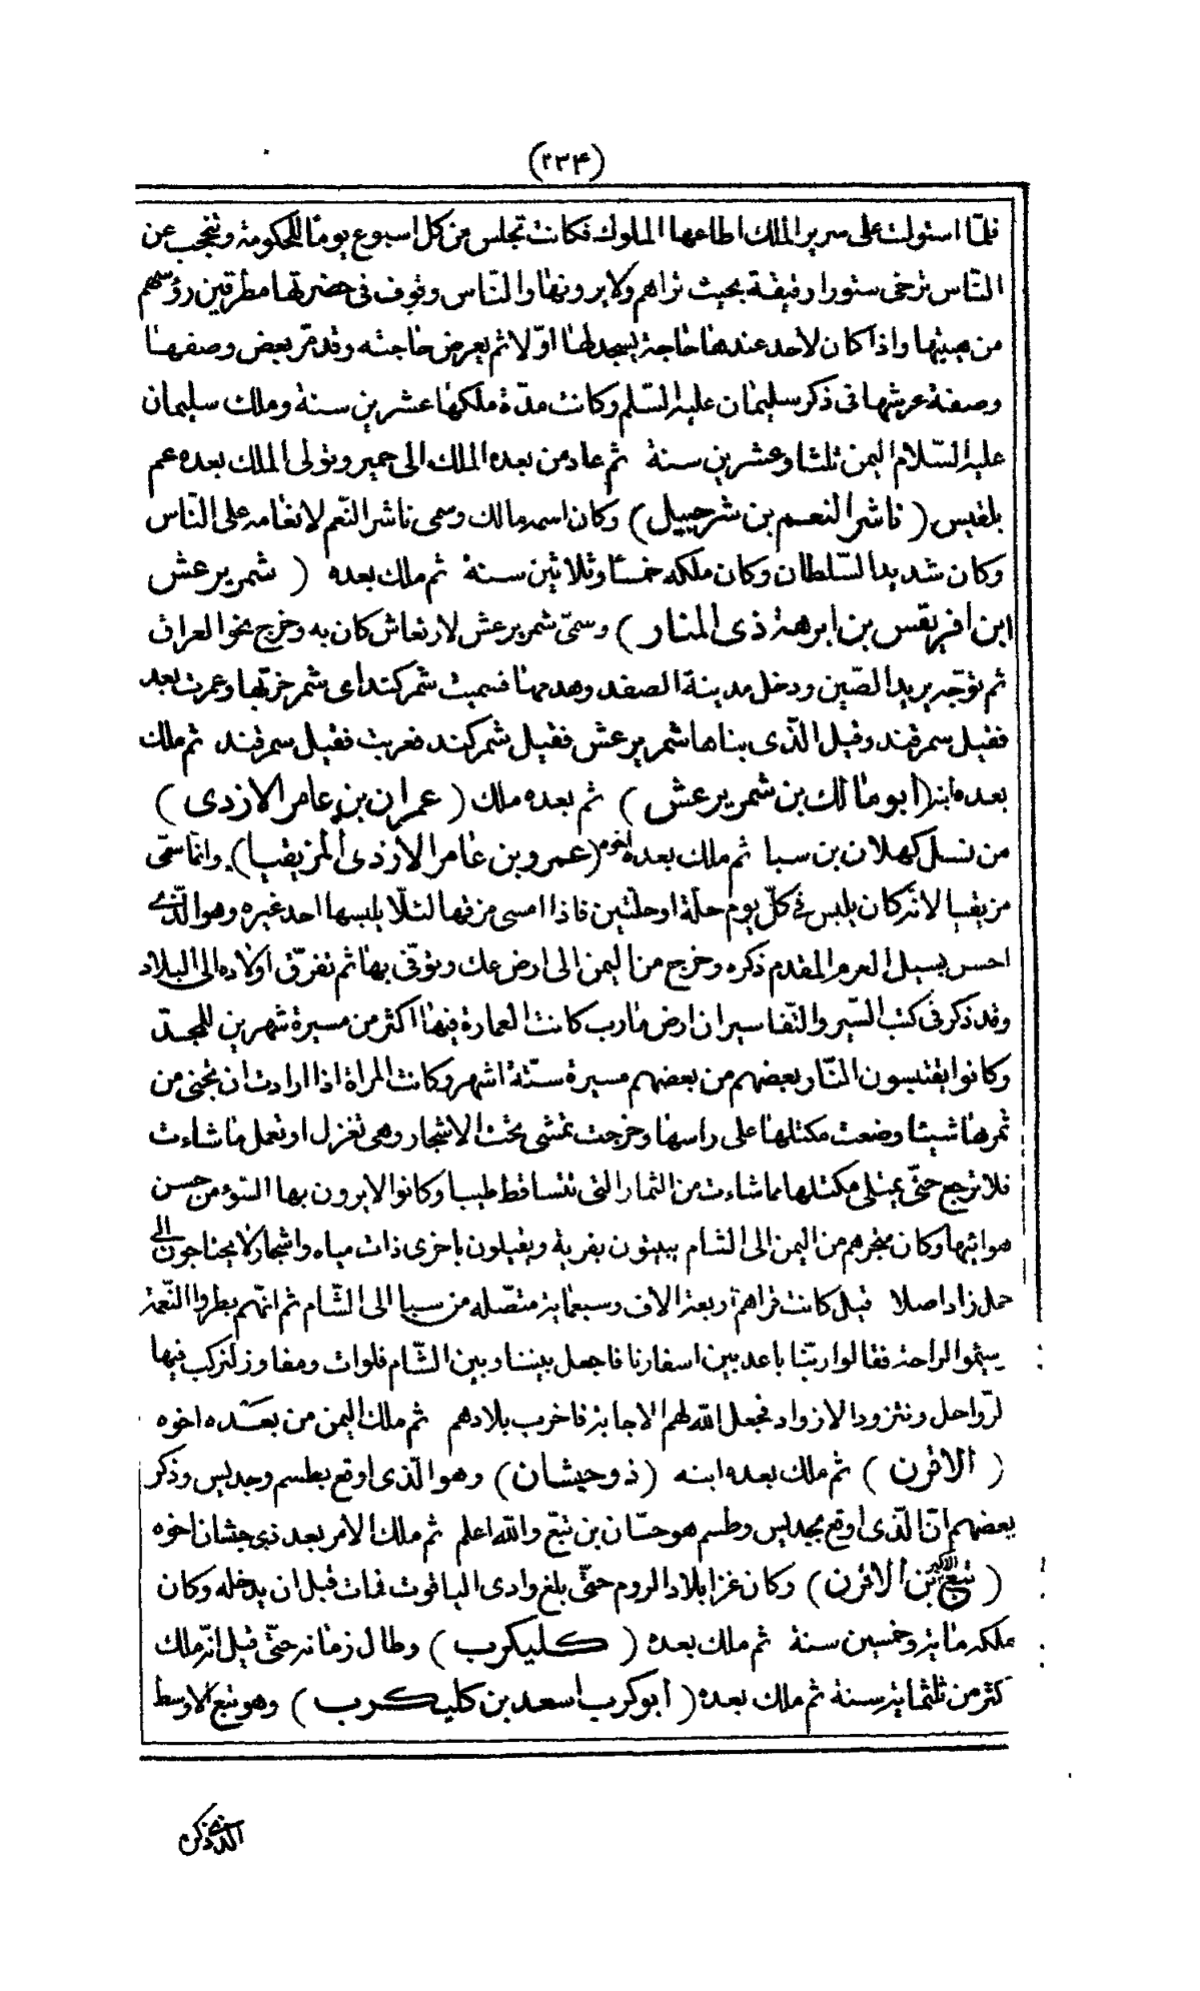 (٢٣۴)
فلمّا استولت على سرير الملك اطاعها الملوك فكانت تجلس من كل اسبوع يوما للحكومة وتحتجب عن
النّاس ترخى ستورا رقيقة بحيث تراهم ولا يرونها والنّاس وقوف فى حضرتها مطرقين رؤسهم
من هيبتها واذا كان لاحد عندها حاجة يسجد لها اوّلا ثم يعرض حاجته وقد مرّ بعض وصفها
وصفة عرشها فى ذكر سليمان عليه السّلم وكانت مدّة ملكها عشرين سنة وملك سليمان
عليه السّلام اليمن ثلثا وعشرين سنة ثم عاد من بعده الملك الى حمير وتولى الملك بعده عم
بلقيس (ناشر النعم بن شرحبيل) وكان اسمه مالك وسمى ناشر النّعم لانعامه على النّاس
وكان شديد السّلطان وكان ملكه خمسا وثلاثين سنة ثم ملك بعده (شمر يرعش
ابن افريقس بن ابرهة ذى المنار) وسمّى شمر يرعش لارتعاش كان به وخرج نحو العراق
ثم توجّه يريد الصّين ودخل مدينة الصغد وهدمها فسميت شمركند اى شمر خرّبها وعرّبت بعد
فقيل سمرقند وقيل الّذى بناها شمر يرعش فقيل شمركند فعربت فقيل سمرقند ثم ملك
بعده ابنه (ابو مالك بن شمر يرعش) ثم بعده ملك (عمران بن عامر الازدى)
من نسل كهلان بن سبا ثم ملك بعده اخوه (عمرو بن عامر الازدى المزيقيا) وانّما سمّى
مزيقيا لانّه كان يلبس فى كلّ يوم حلّة او حلّتين فاذا امسى مزقها لئلّا يلبسها احد غيره وهو الّذى
احس بسيل العرم المقدم ذكره وخرج من اليمن الى ارض عك وتوفّى بها ثم تفرّق اولاده الى البلاد
وقد ذكر فى كتب السّير والتّفاسير ان ارض مارب كانت العمارة فيها اكثر من مسيرة شهرين للمجدّ
وكانوا يقتبسون النّار بعضهم من بعضهم مسيرة ستّة اشهر وكانت المراة اذا ارادت ان تجنى من
ثمرها شيئا وضعت مكتلها على راسها وخرجت تمشى تحت الاشجار وهى تغزل او تعمل ما شاءت
فلا ترجع حتّى يمتلى مكتلها مما شاءت من الثمار التى تتساقط طيبا وكانوا لا يرون بها السّوء من حسن
هوائها وكان متجرهم من اليمن الى الشام يبيتون بقرية ويقيلون باخرى ذات مياه واشجار لا يحتاجون الى
حمل زاد اصلا قيل كانت قراهم اربعة الاف وسبعماية متصله من سبا الى الشّام ثم انّهم بطروا النّعمة
وسئموا الراحة فقالوا ربّنا باعد بين اسفارنا فاجعل بيننا وبين الشّام فلوات ومفاوز لنركب فيها
لرّواحل ونتزود الازواد فجعل الله لهم الاجابة فاخرب بلادهم ثم ملك اليمن من بعده اخوه
(الاقرن) ثم ملك بعده ابنه (ذو حيشان) وهو الّذى اوقع بطسم وجديس وذكر
بعضهم انّ الّذى اوقع بجديس وطسم هو حسّان بن تبّع والله اعلم ثم ملك الامر بعد ذى جشان اخوه
(تبّع الاكبر بن الاقرن) وكان غزا بلاد الروم حتّى بلغ وادى الياقوت فمات قبل ان يدخله وكان
ملكه ماية وخمسين سنة ثم ملك بعده (كليكرب) وطال زمانه حتّى قيل انّه ملك
كثر من ثلثماية سنة ثم ملك بعده (ابو كرب اسعد بن كليكرب) وهو تبع الاوسط
الّذى ذكره